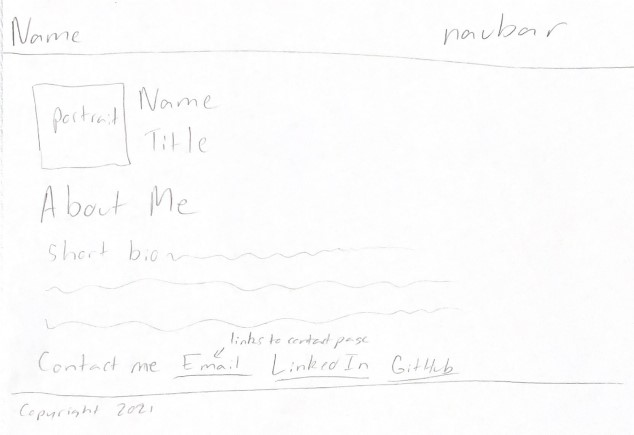 Name navbar
portrait
Name
Title
About Me
Short bio
links to contact page
Contact me Email LinkedIn GitHub
Copyright 2021